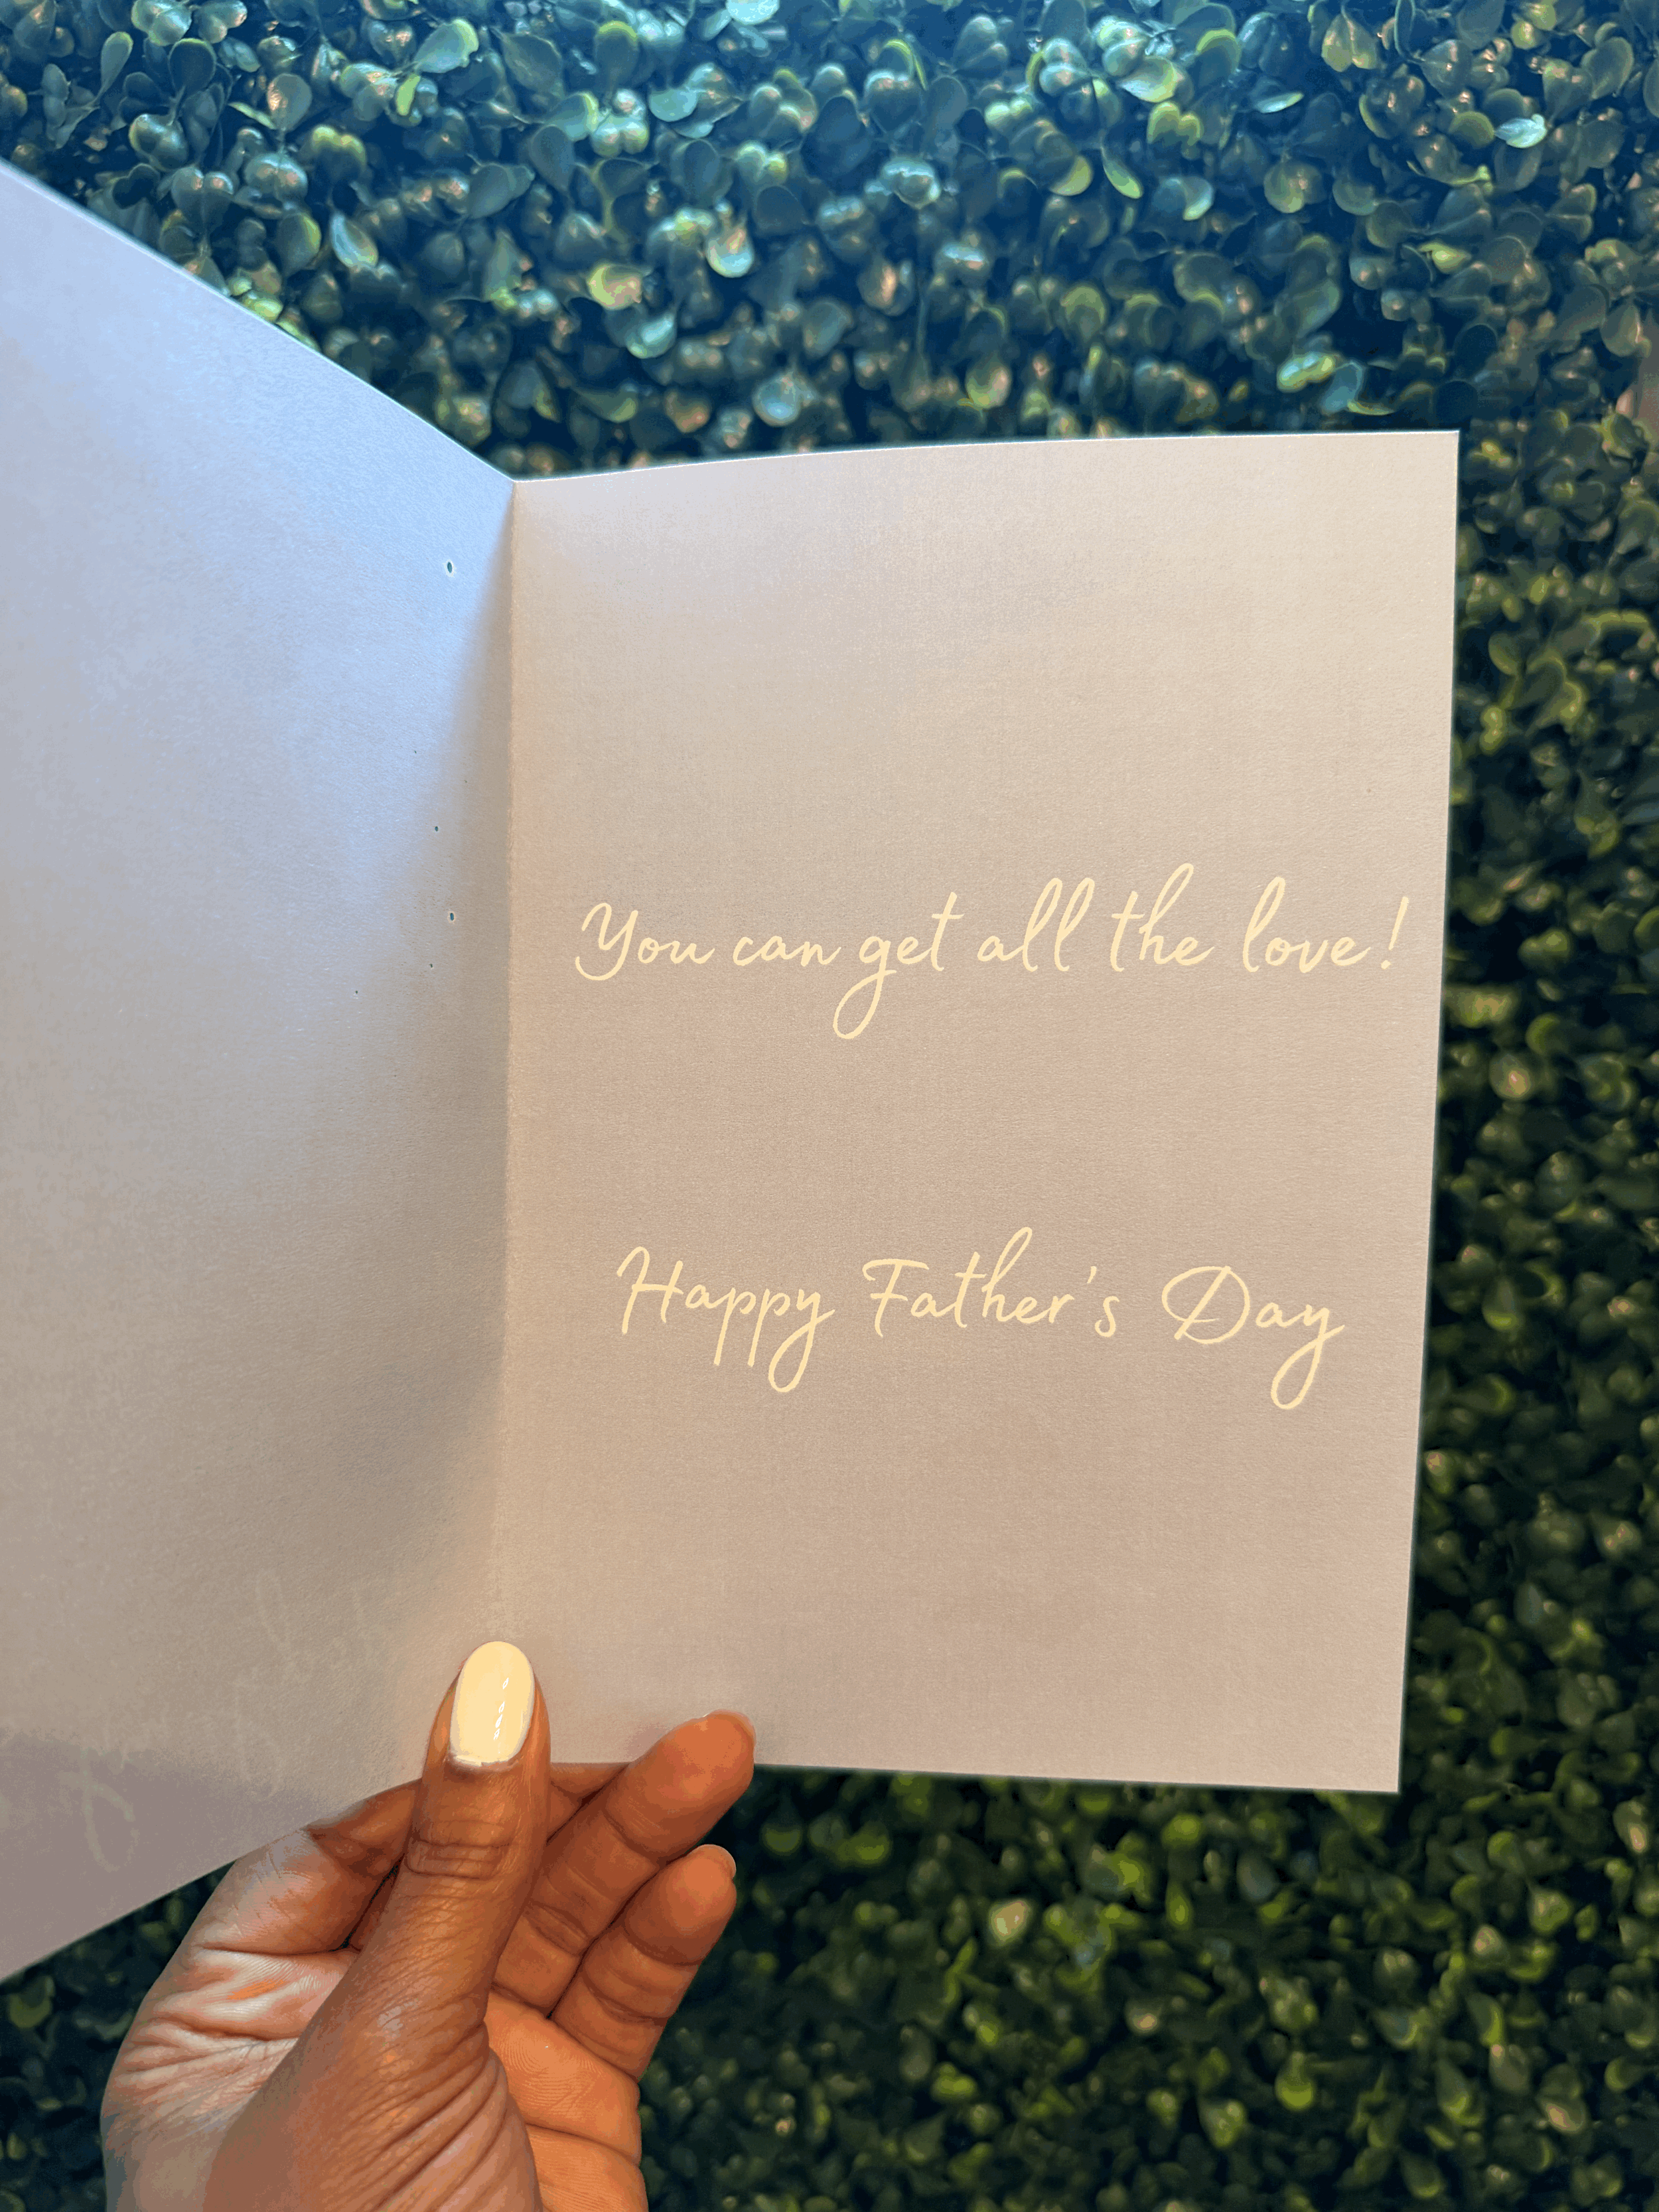 You can get all the love!
Happy Father's Day